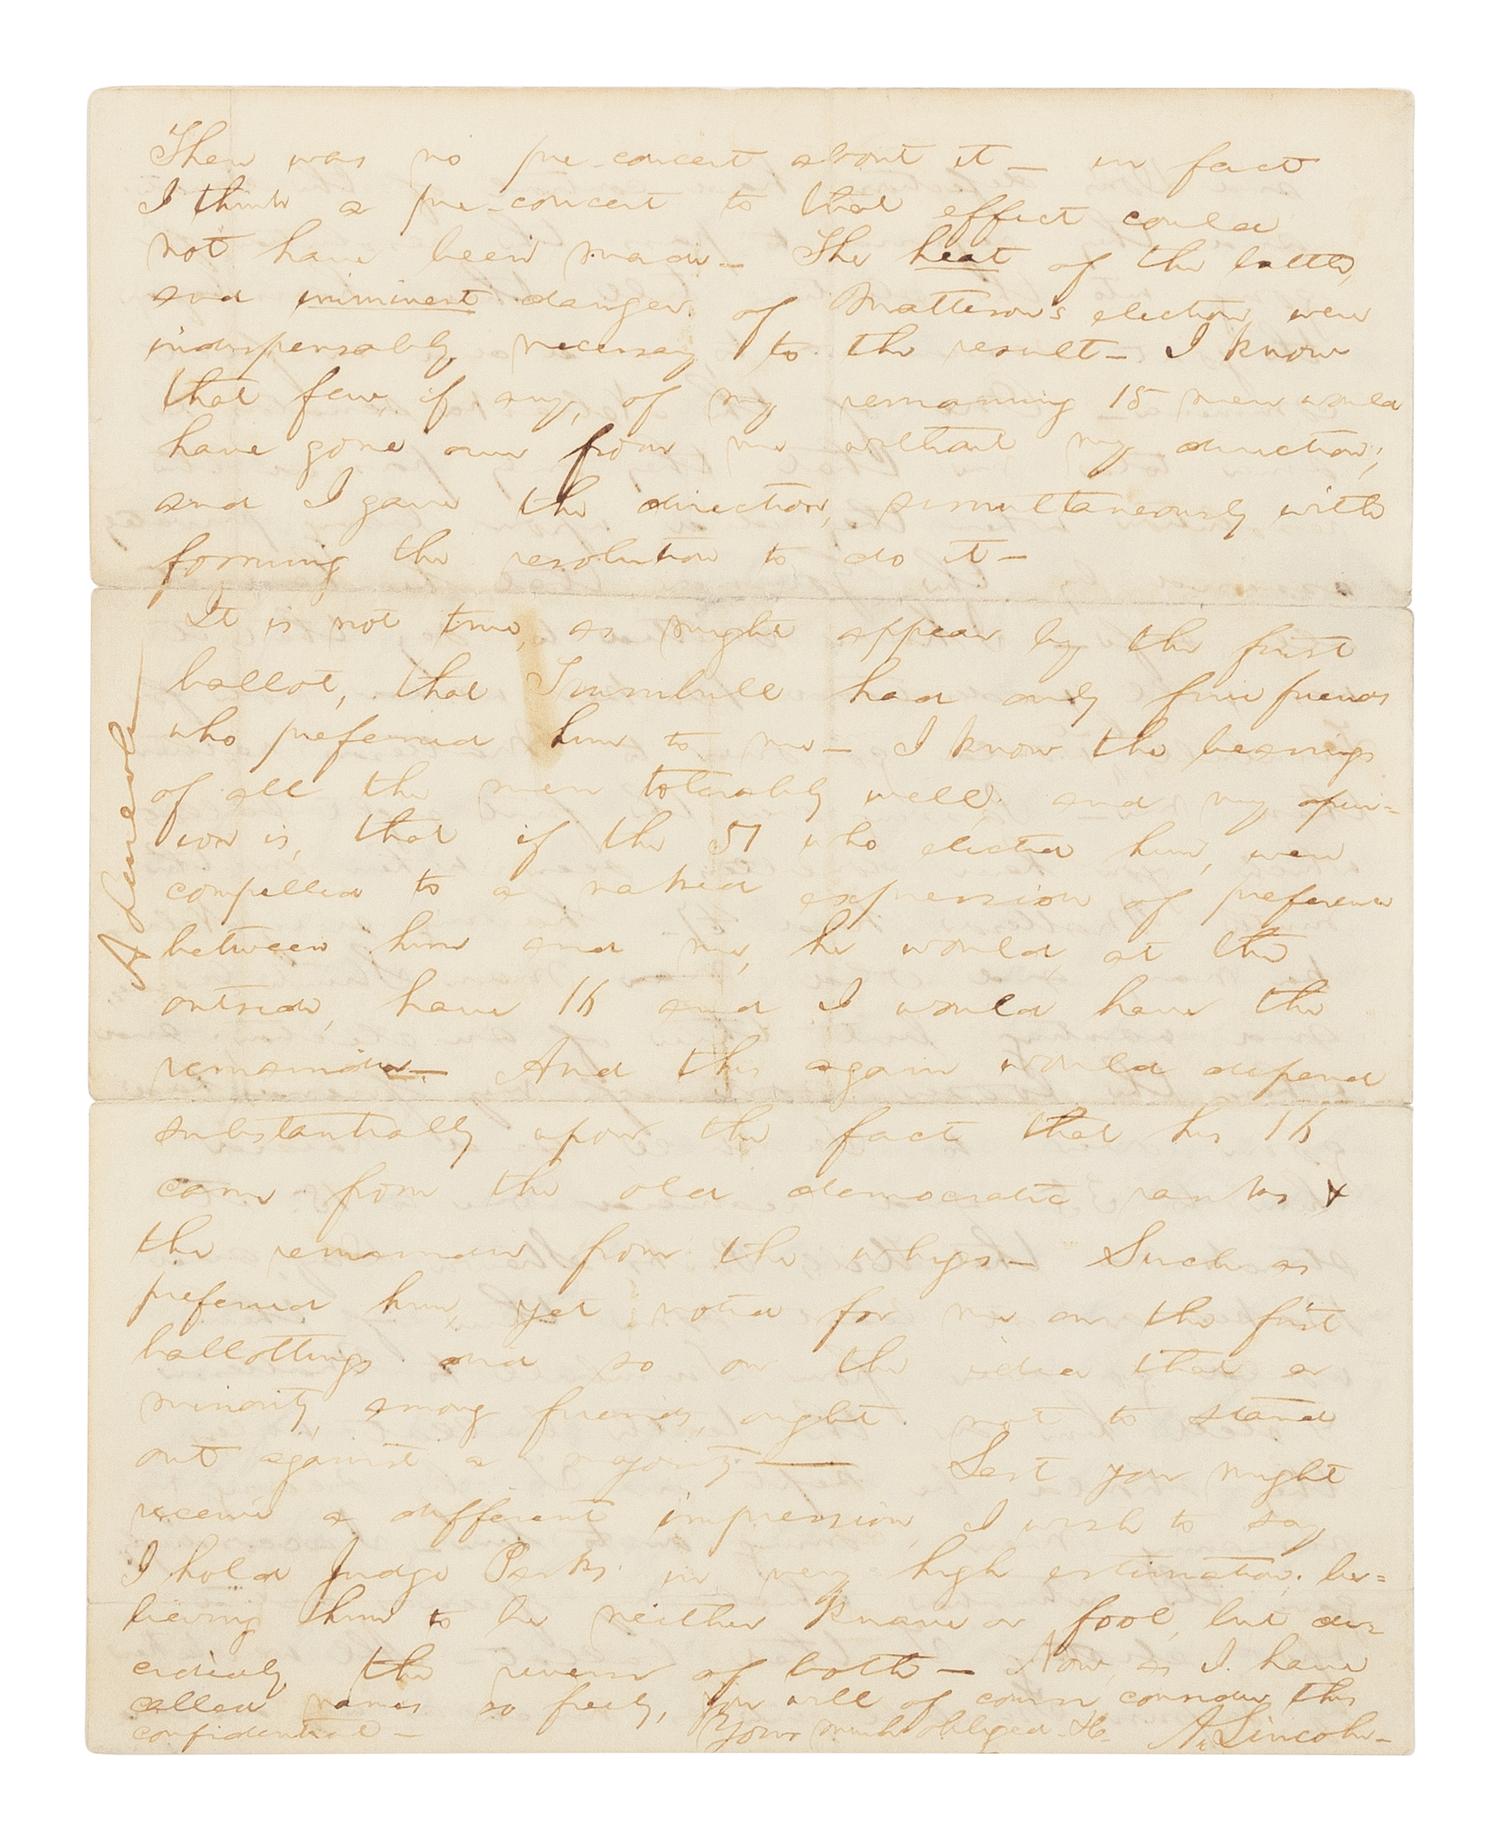 There was no pre-concert about it — in fact
I think a pre-concert to that effect could
not have been made — The heat of the battle,
and imminent danger of Matteson's election were
indispensably necessary to the result — I know
that few, if any, of my remaining 15 men would
have gone over from me without my direction;
and I gave the direction, simultaneously with
forming the resolution to do it —
It is not true, as might appear by the first
ballot, that Trumbull had only five friends
who preferred him to me — I know the bearings
of all the men tolerably well, and my opin=
ion is, that if the 51 who elected him, were
compelled to a naked expression of preference
between him and me, he would, at the
outside, have 16 and I would have the
remainder — And this again would depend
substantially upon the fact that his 16
came from the old democratic ranks &
the remainder from the whigs — Such as
preferred him, yet voted for me on the first
ballottings and so on the idea that a
minority, among friends, ought not to stand
out against a majority — Lest you might
receive a different impression, I wish to say
I hold Judge Parks in very high estimation; be=
lieving him to be neither knave or fool, but de=
cidedly the reverse of both — Now, as I have
called names so freely, you will of course consider this
confidential —
Yours much obliged &c. A. Lincoln —
A Lincoln